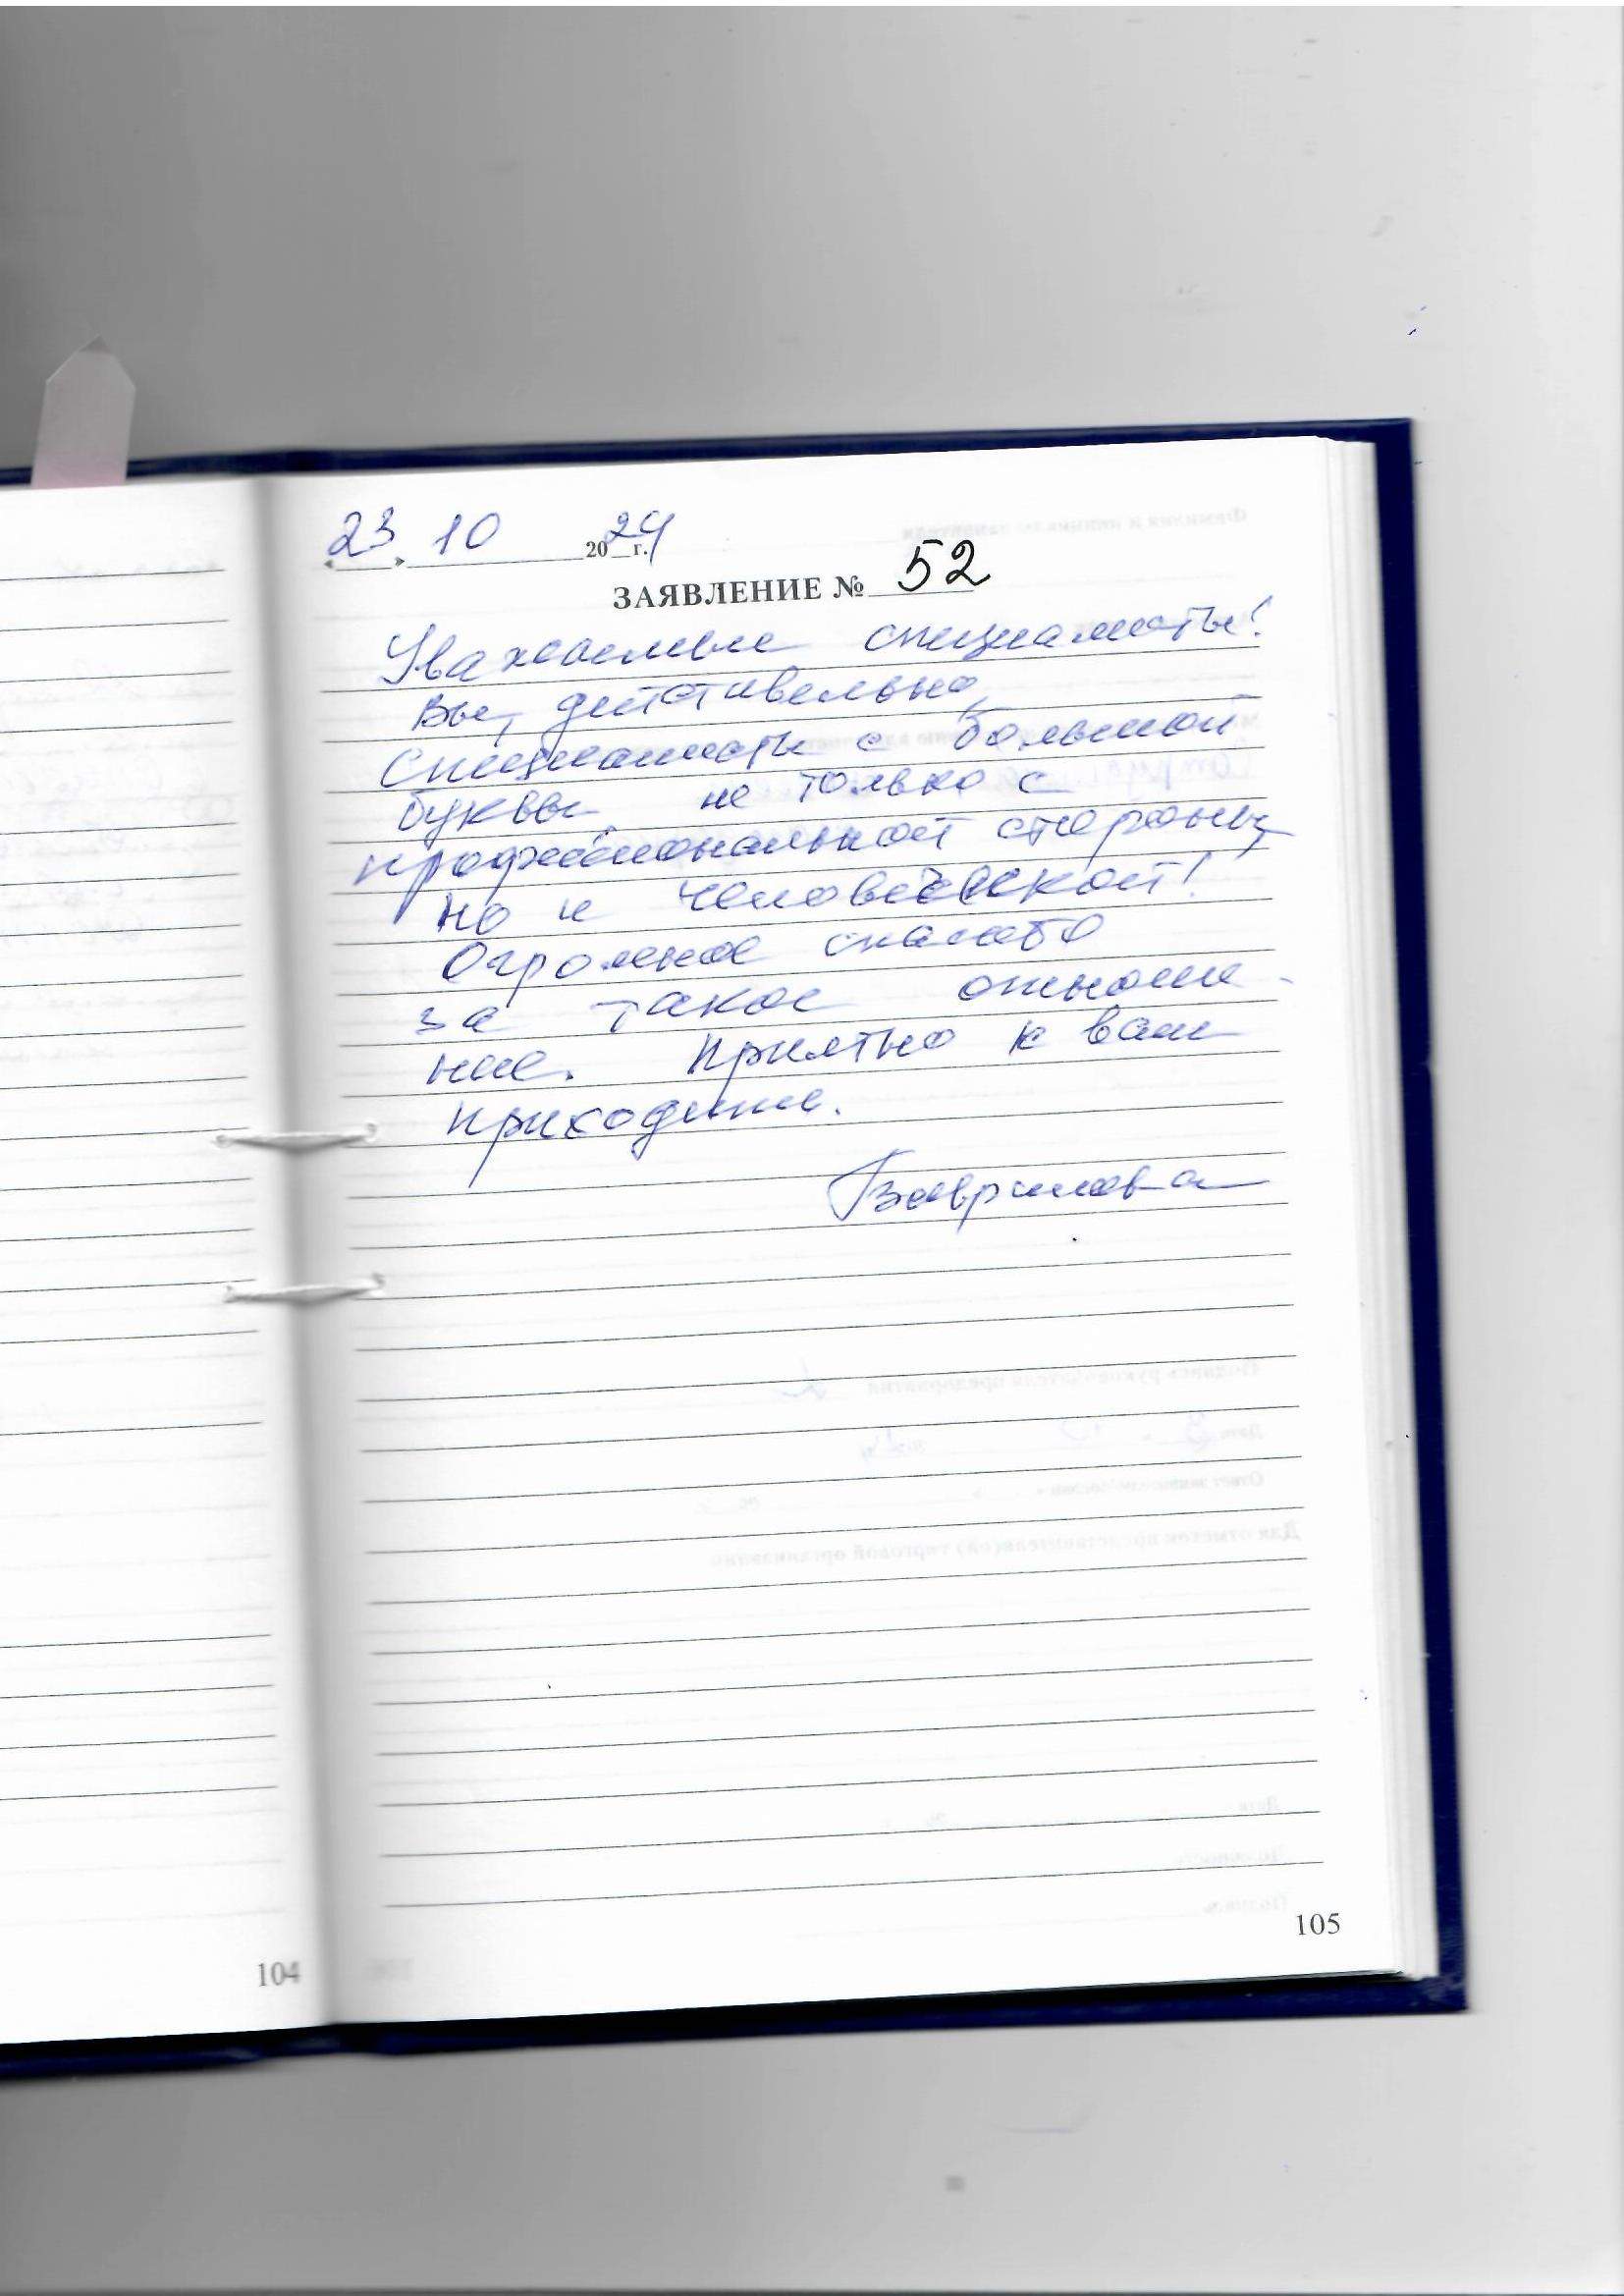 23 10 2024 г.
ЗАЯВЛЕНИЕ № 52
Уважаемые специалисты!
Вы, действивельно,
Специалисты с большой
буквы не только с
профессиональной стороны,
но и человеческой!
Огромное спасибо
за такое отноше-
ние. Приятно к вам
приходить.
Гаврилова
104
105